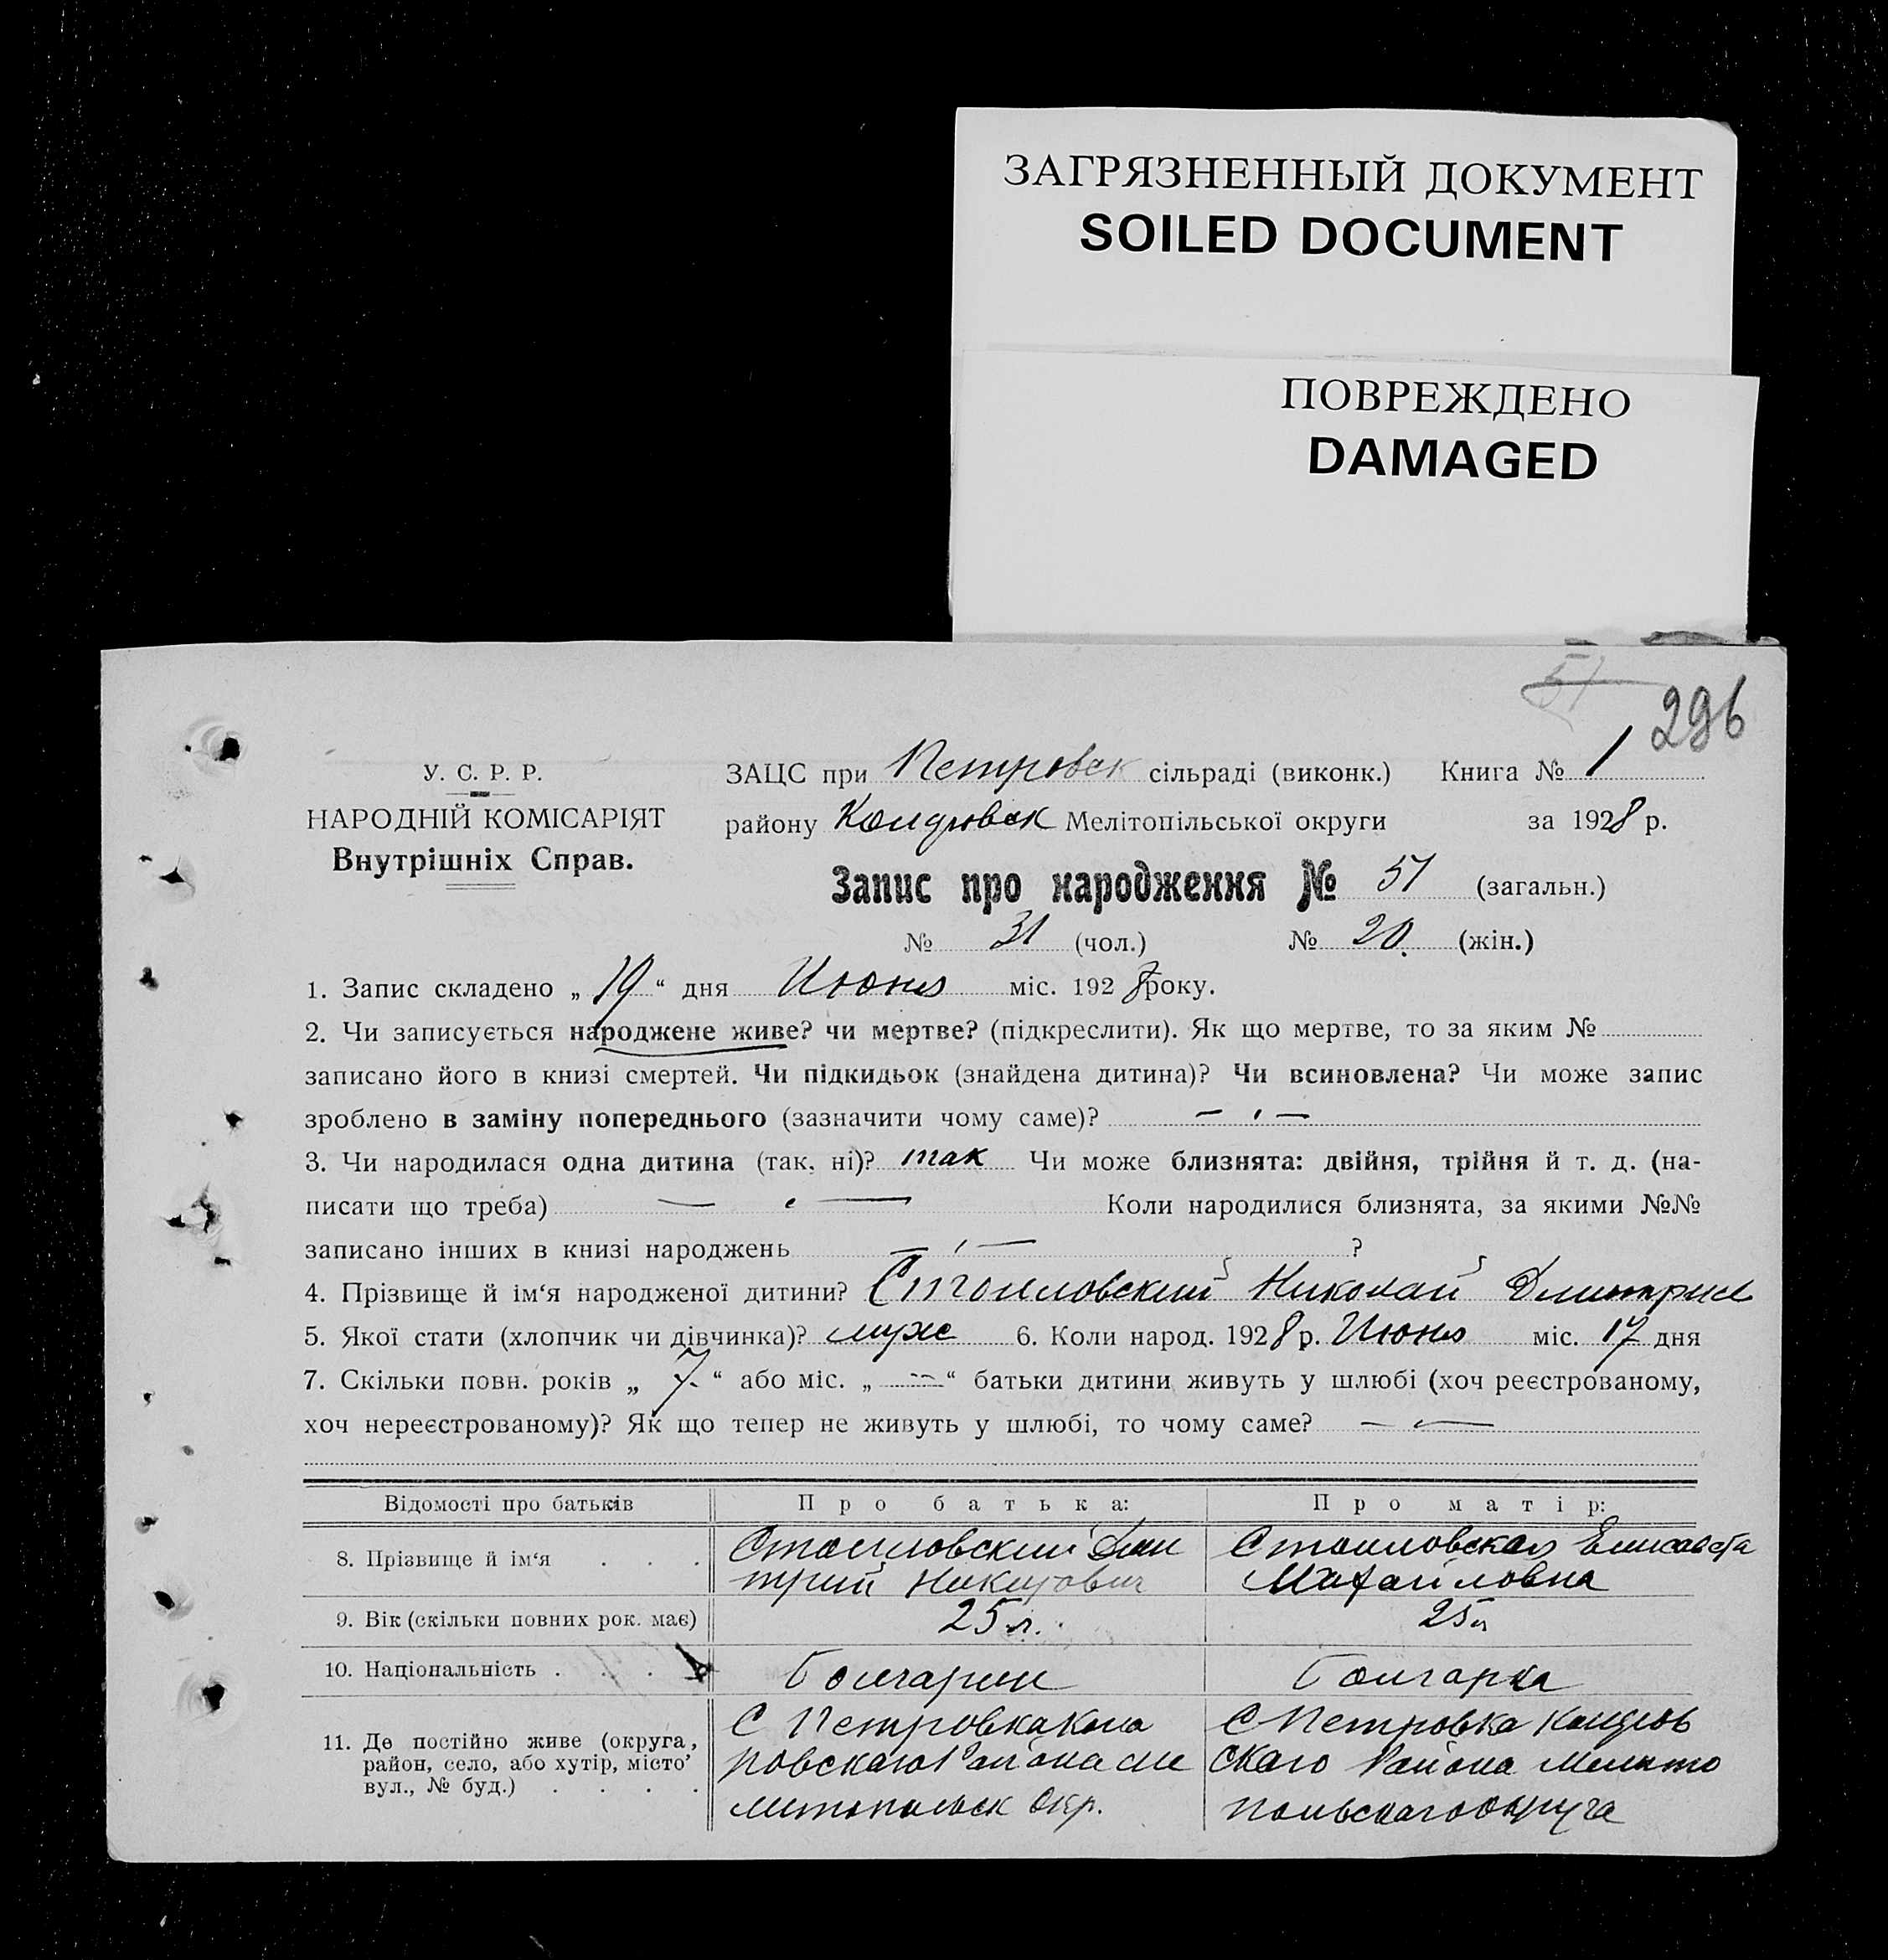 ЗАГРЯЗНЕННЫЙ ДОКУМЕНТ
SOILED DOCUMENT
ПОВРЕЖДЕНО
DAMAGED
51
296
У. С. Р. Р.
НАРОДНІЙ КОМІСАРІЯТ
Внутрішніх Справ.
ЗАЦС при Петровск сільраді (виконк.) Книга № 1
району Мелітопільської округи за 1928 р.
Запис про народження № 51 (загальн.)
№ 31 (чол.) № 20. (жін.)
1. Запис складено „ 19 “ дня Июня міс. 1928 року.
2. Чи записується народжене живе? чи мертве? (підкреслити). Як що мертве, то за яким №
записано його в книзі смертей. Чи підкидьок (знайдена дитина)? Чи всиновлена? Чи може запис
зроблено в заміну попереднього (зазначити чому саме)? — —
3. Чи народилася одна дитина (так, ні)? так Чи може близнята: двійня, трійня й т. д. (на-
писати що треба) — — Коли народилися близнята, за якими №№
записано інших в книзі народжень — — ?
4. Прізвище й ім‘я народженої дитини? Стоиловский Николай Дмитрие
5. Якої стати (хлопчик чи дівчинка)? муже 6. Коли народ. 1928 р. Июня міс. 17 дня
7. Скільки повн. років „ 7. “ або міс. „ — “ батьки дитини живуть у шлюбі (хоч реєстрованому,
хоч нереєстрованому)? Як що тепер не живуть у шлюбі, то чому саме? — —
Відомості про батьків Про батька: Про матір:
8. Прізвище й ім‘я . . . Стоиловский Дми Стоиловская Елисавета
трий Михайловна
9. Вік (скільки повних рок. має) 25 л. 25 л
10. Національність . . . Болгарин Болгарка
11. Де постійно живе (округа, район, село, або хутір, місто’ вул., № буд.) . . . .
С Петровка Кола С Петровка
ровскаго Района ме скаго Района Мелито
литопольск окр. польскаго округа